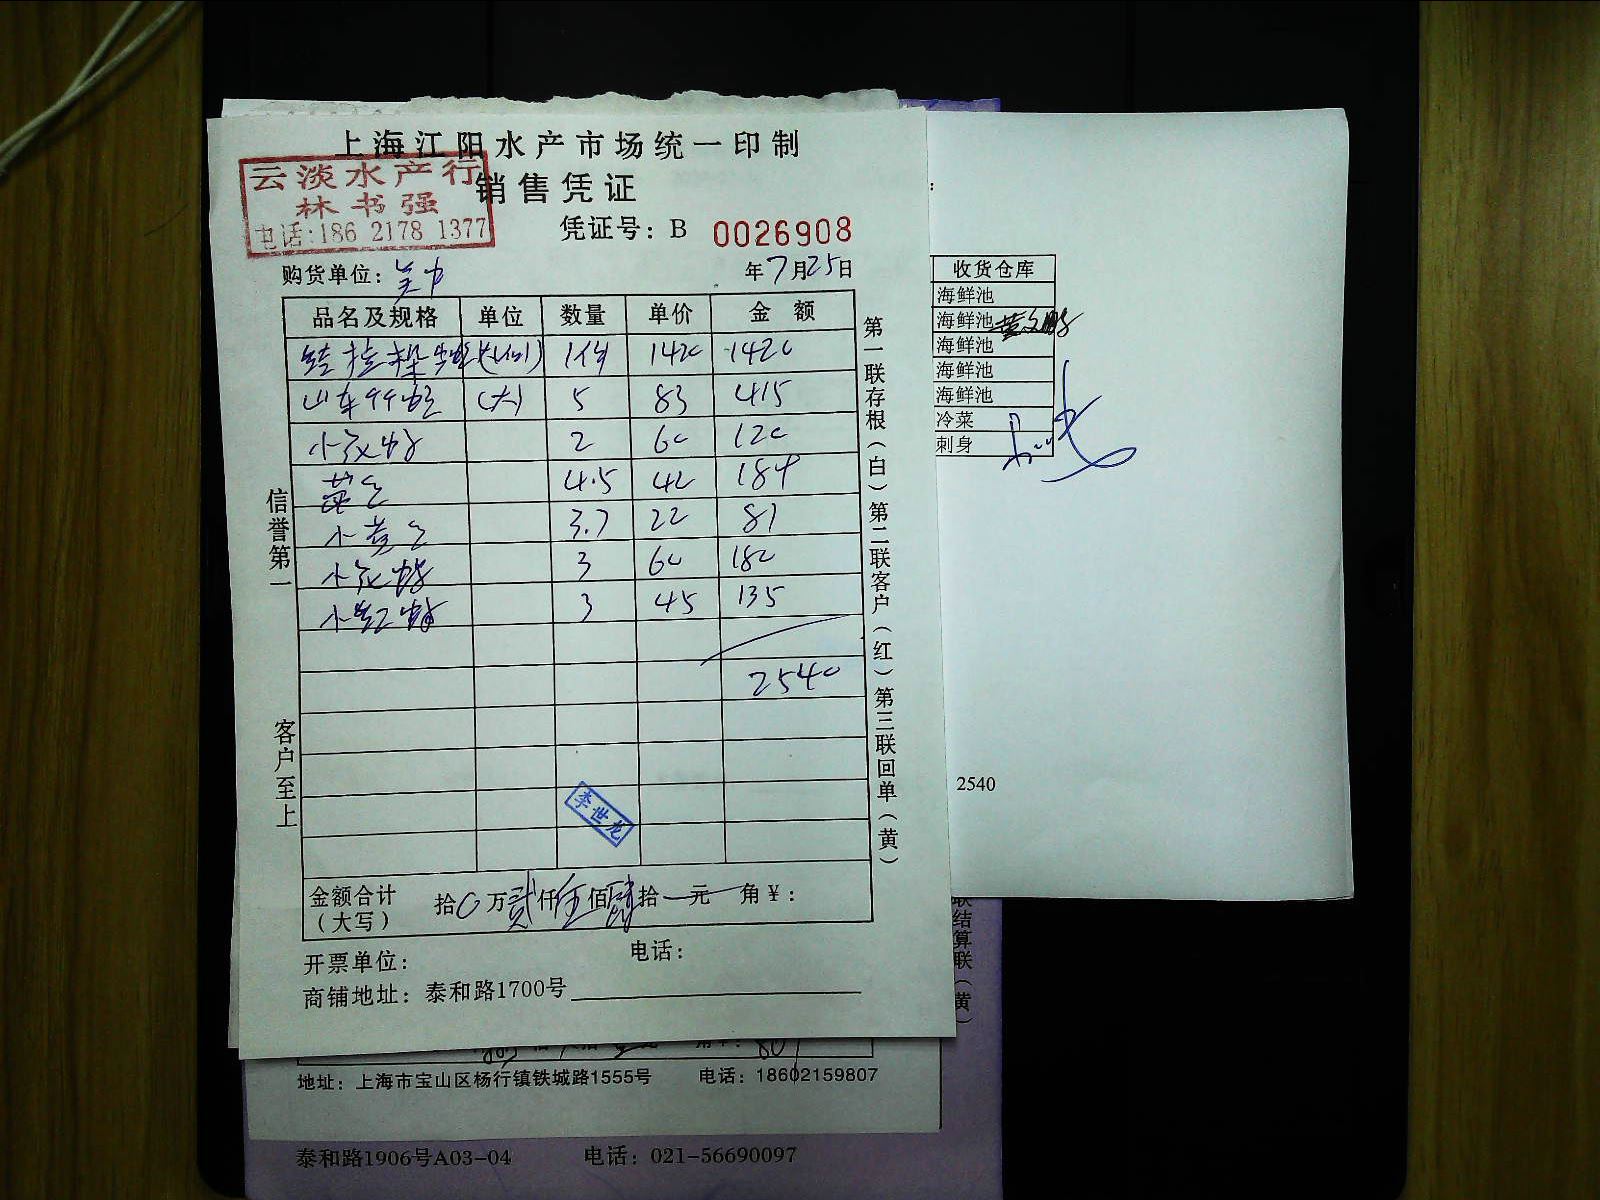 上海江阳水产市场统一印制
云淡水产行
林书强
电话:186 2178 1377
销售凭证
凭证号: B 0026908
购货单位:
年7月25日
品名及规格 单位 数量 单价 金额
1420 1420
山东 (大) 5 83 415
小 2 60 120
4.5 42 189
小黄 3.7 22 81
小 3 60 180
小红 3 45 135
2540
李世龙
金额合计(大写) 拾0万贰仟伍佰肆拾一元 角¥:
开票单位: 电话:
商铺地址: 泰和路1700号
信誉第一
客户至上
第一联存根(白)第二联客户(红)第三联回单(黄)
收货仓库
海鲜池
海鲜池
海鲜池
海鲜池
海鲜池
冷菜
刺身
2540
联结算联(黄)
地址: 上海市宝山区杨行镇铁城路1555号 电话: 18602159807
泰和路1906号A03-04 电话: 021-56690097